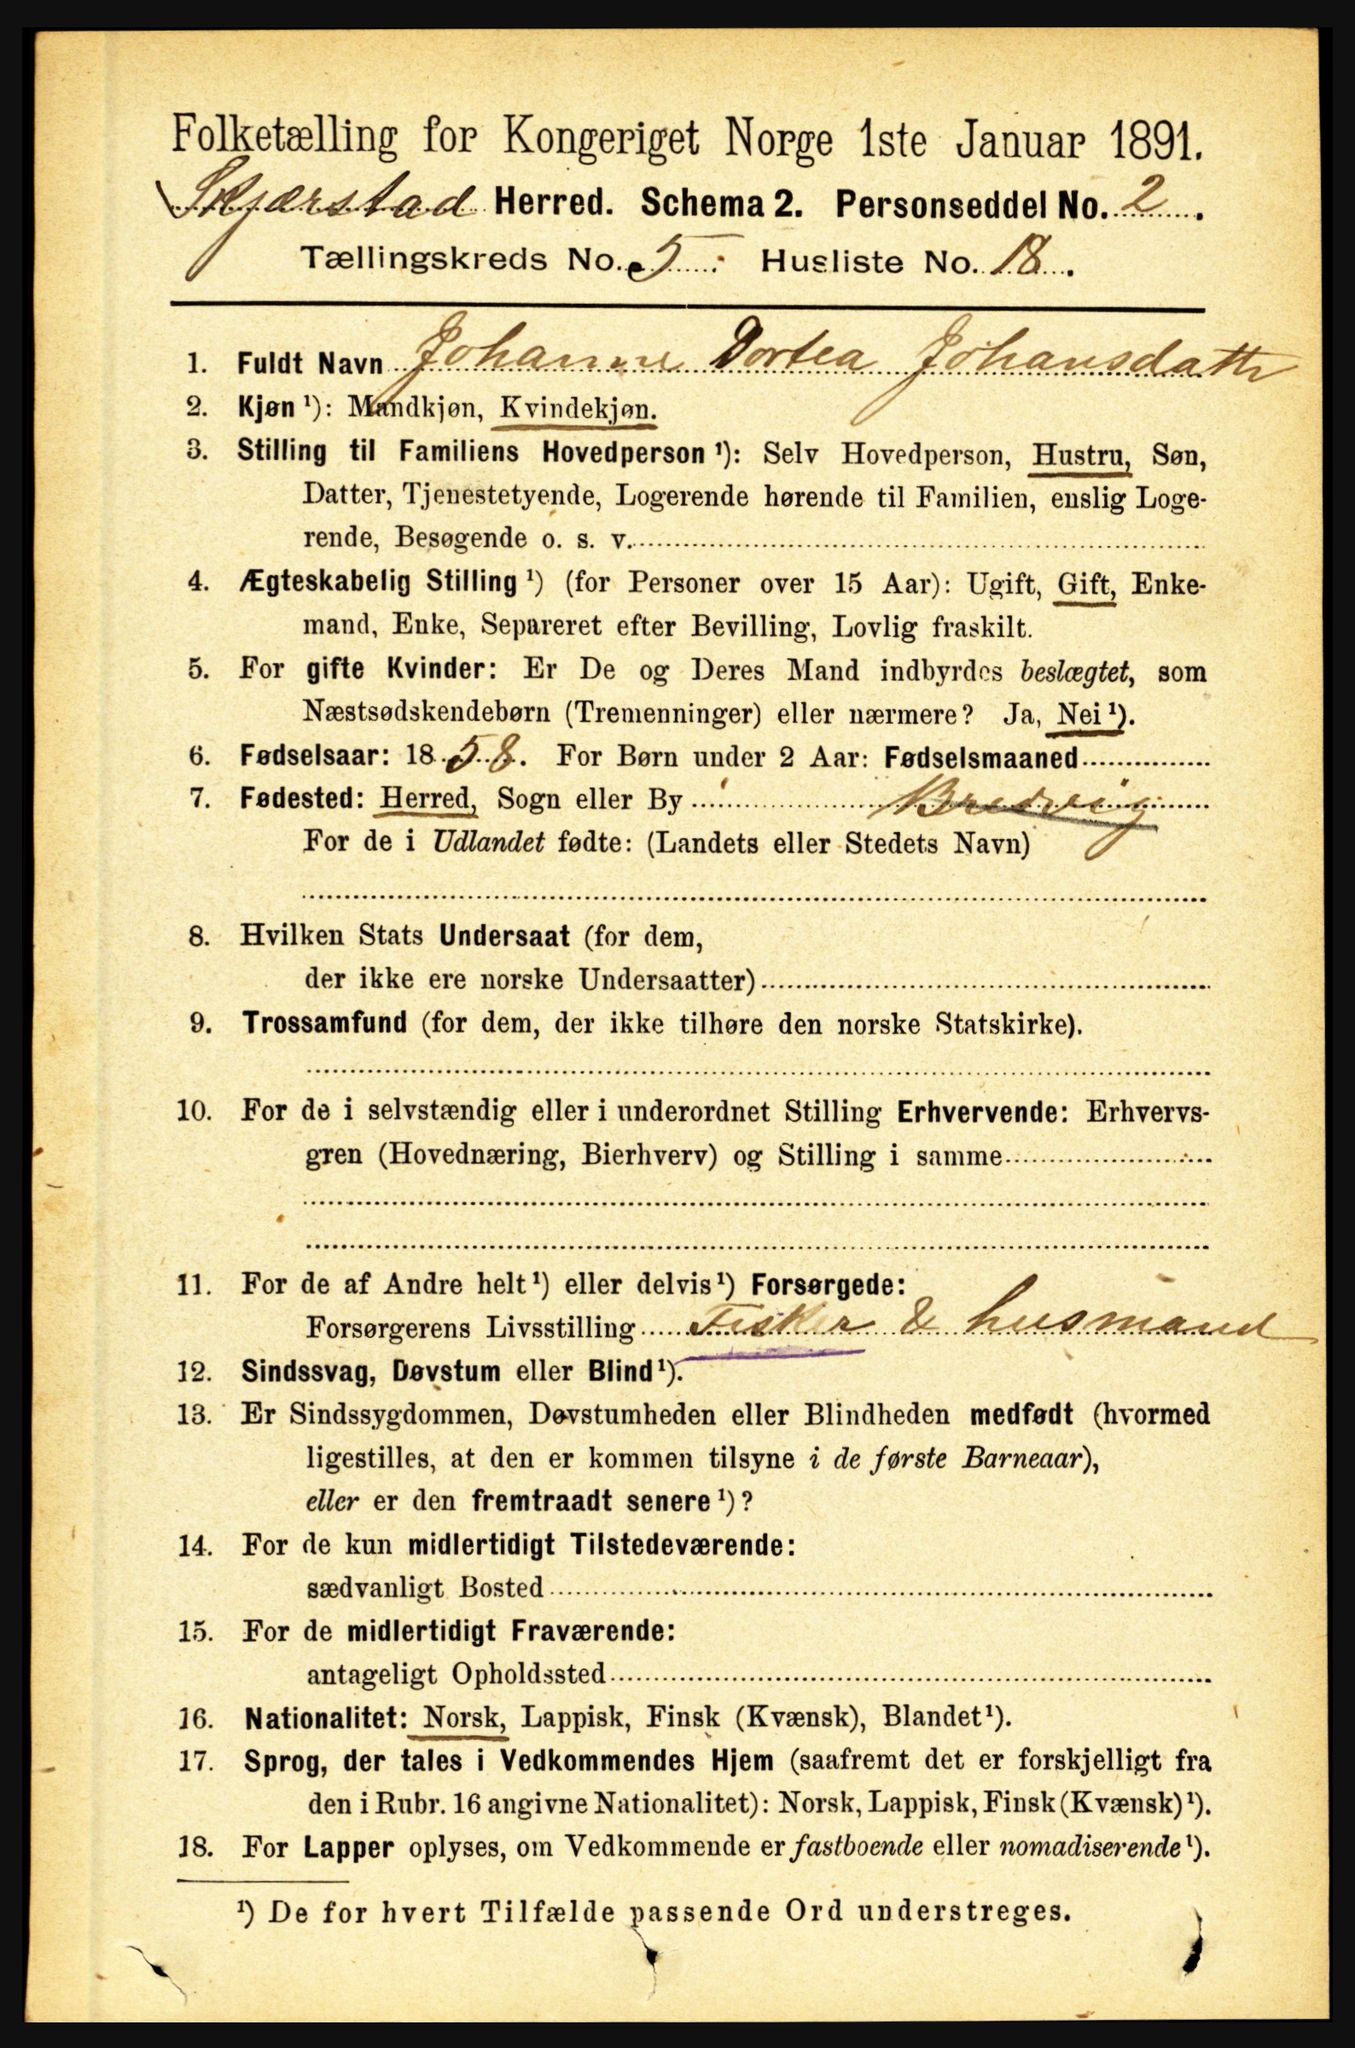 Folketælling for Kongeriget Norge 1ste Januar 1891.
Skjærstad Herred. Schema 2. Personseddel No. 2.
Tællingskreds No. 5. Husliste No. 18.
1. Fuldt Navn Johanne Dortea Johansdatter
2. Kjøn ¹): Mandkjøn, Kvindekjøn.
3. Stilling til Familiens Hovedperson ¹): Selv Hovedperson, Hustru, Søn,
Datter, Tjenestetyende, Logerende hørende til Familien, enslig Loge-
rende, Besøgende o. s. v.
4. Ægteskabelig Stilling ¹) (for Personer over 15 Aar): Ugift, Gift, Enke-
mand, Enke, Separeret efter Bevilling, Lovlig fraskilt.
5. For gifte Kvinder: Er De og Deres Mand indbyrdes beslægtet, som
Næstsødskendebørn (Tremenninger) eller nærmere? Ja, Nei ¹).
6. Fødselsaar: 1858. For Børn under 2 Aar: Fødselsmaaned
7. Fødested: Herred, Sogn eller By Bredvig
For de i Udlandet fødte: (Landets eller Stedets Navn)
8. Hvilken Stats Undersaat (for dem,
der ikke ere norske Undersaatter)
9. Trossamfund (for dem, der ikke tilhøre den norske Statskirke).
10. For de i selvstændig eller i underordnet Stilling Erhvervende: Erhvervs-
gren (Hovednæring, Bierhverv) og Stilling i samme
11. For de af Andre helt ¹) eller delvis ¹) Forsørgede:
Forsørgerens Livsstilling Fisker & husmand
12. Sindssvag, Døvstum eller Blind ¹).
13. Er Sindssygdommen, Døvstumheden eller Blindheden medfødt (hvormed
ligestilles, at den er kommen tilsyne i de første Barneaar),
eller er den fremtraadt senere ¹)?
14. For de kun midlertidigt Tilstedeværende:
sædvanligt Bosted
15. For de midlertidigt Fraværende:
antageligt Opholdssted
16. Nationalitet: Norsk, Lappisk, Finsk (Kvænsk), Blandet ¹).
17. Sprog, der tales i Vedkommendes Hjem (saafremt det er forskjelligt fra
den i Rubr. 16 angivne Nationalitet): Norsk, Lappisk, Finsk (Kvænsk) ¹).
18. For Lapper oplyses, om Vedkommende er fastboende eller nomadiserende ¹).
¹) De for hvert Tilfælde passende Ord understreges.